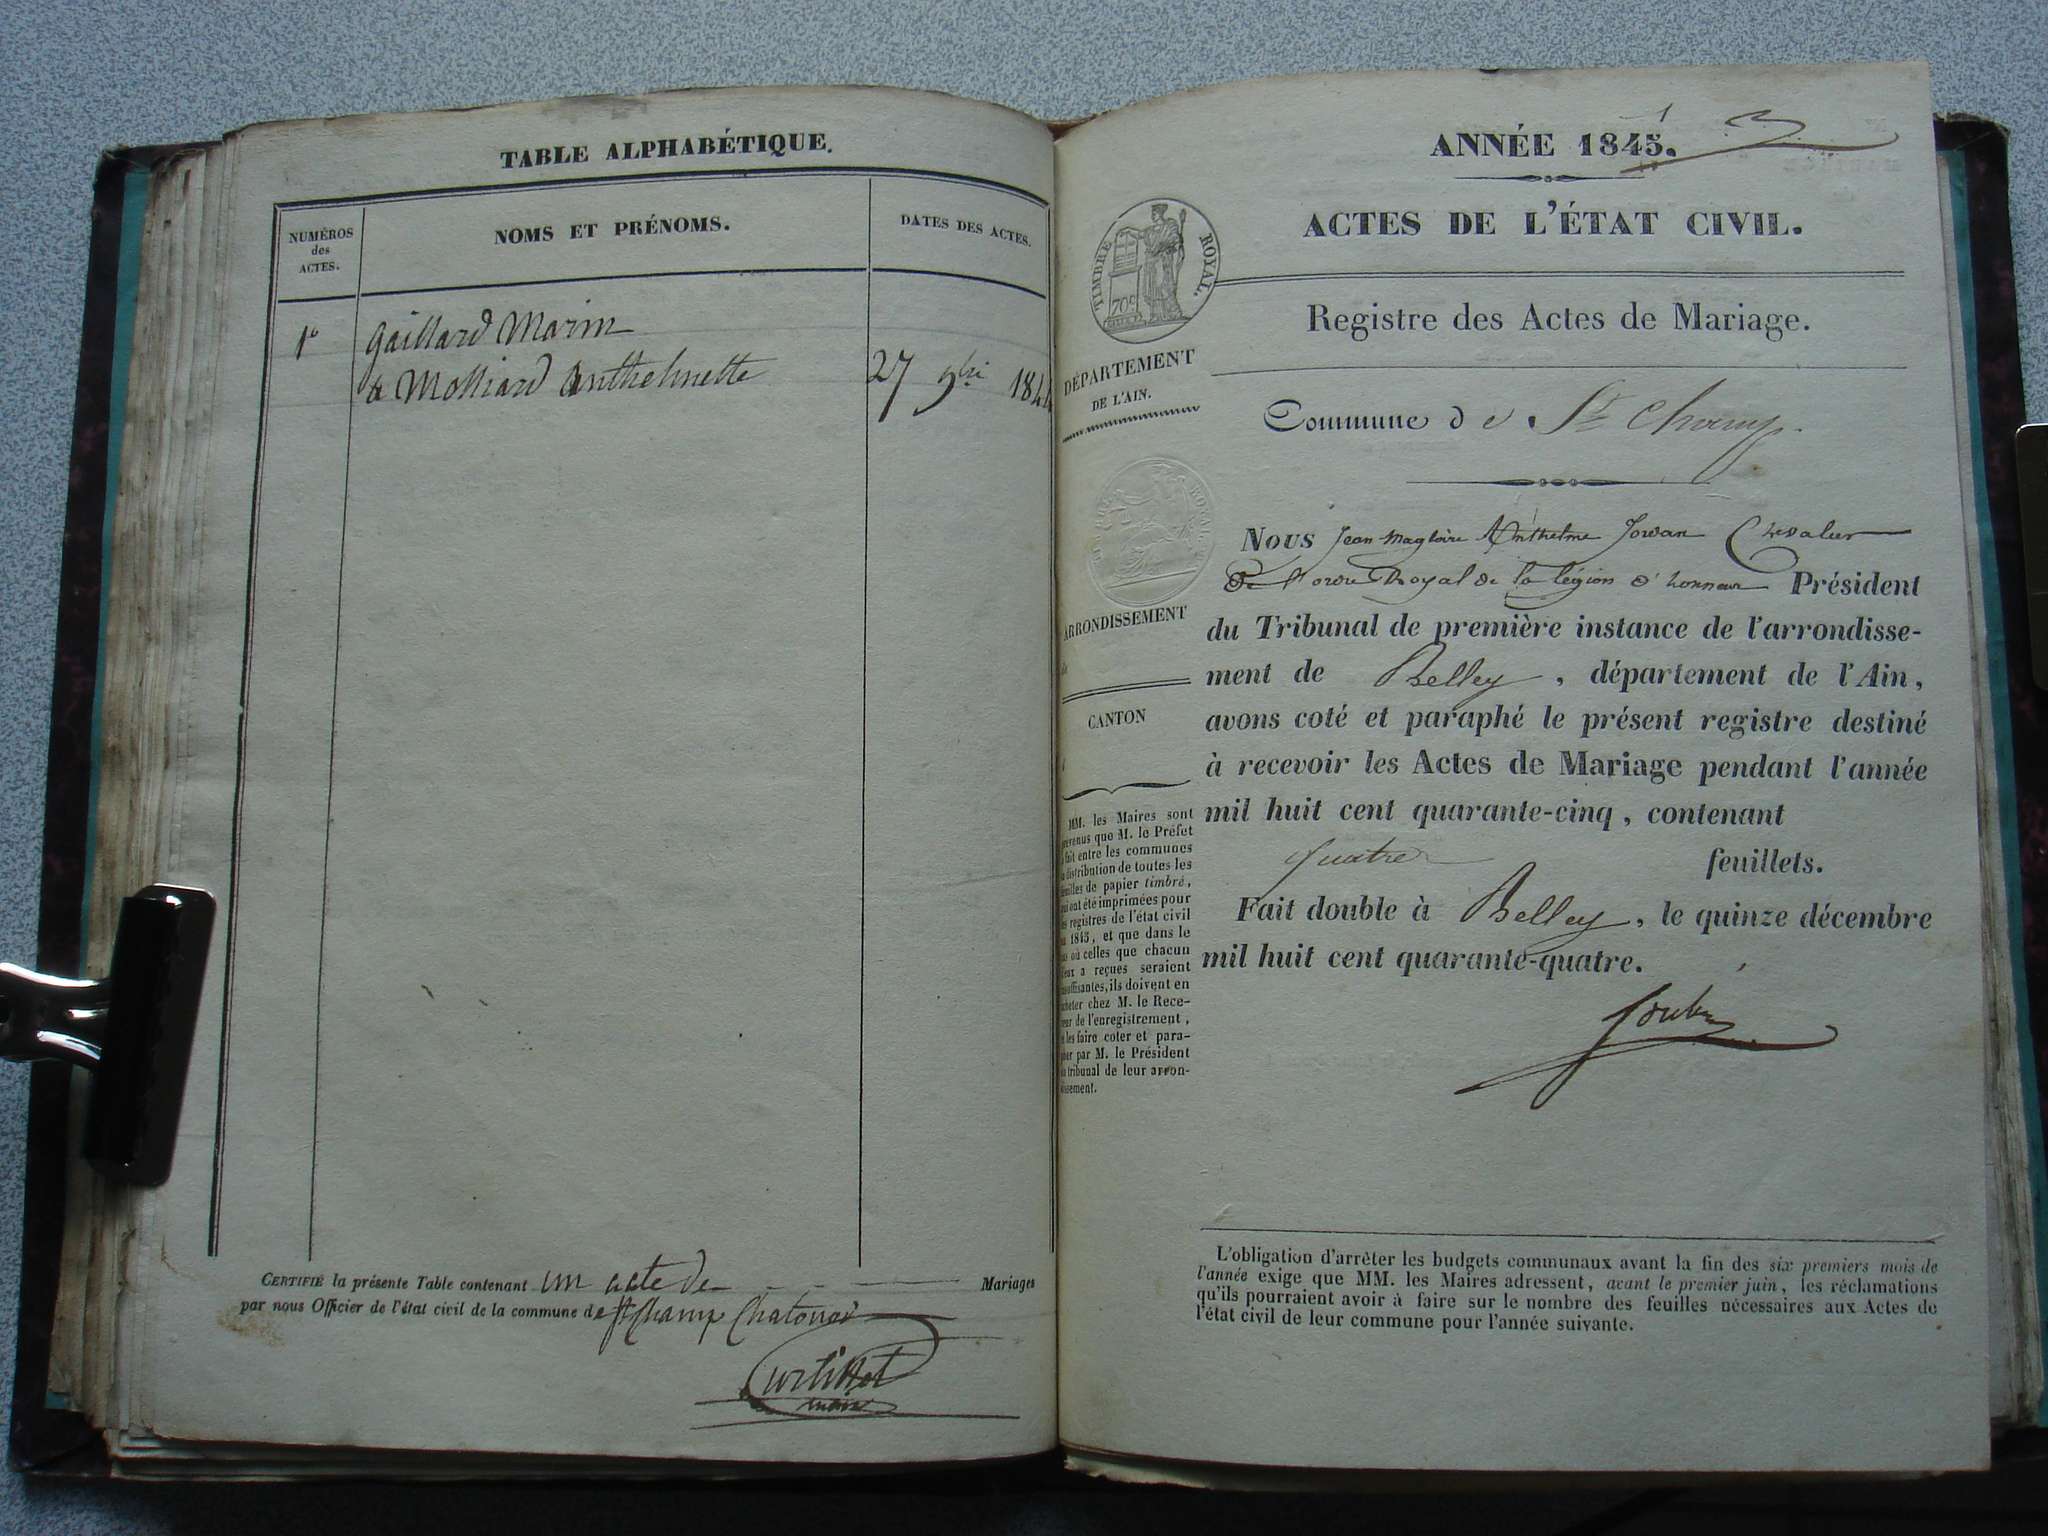 TABLE ALPHABÉTIQUE.
NUMÉROS
des
ACTES.
NOMS ET PRÉNOMS.
DATES DES ACTES.
1º Gaillard Marin
& Molliard Anthelmette 27 9bre 1844
CERTIFIÉ la présente Table contenant un acte de Mariages
par nous Officier de l'état civil de la commune de St Champ Chatonod
Curtillet
maire
1
ANNÉE 1845.
ACTES DE L'ÉTAT CIVIL.
TIMBRE ROYAL.
70c
Registre des Actes de Mariage.
DÉPARTEMENT
DE L'AIN.
Commune de St Champ.
ARRONDISSEMENT
CANTON
Nous Jean Magloire Anthelme Chevalier
De l'ordre Royal de la légion d'honneur Président
du Tribunal de première instance de l'arrondisse-
ment de Belley, département de l'Ain,
avons coté et paraphé le présent registre destiné
à recevoir les Actes de Mariage pendant l'année
mil huit cent quarante-cinq, contenant
quatre feuillets.
Fait double à Belley, le quinze décembre
mil huit cent quarante-quatre.
MM. les Maires sont
prévenus que M. le Préfet
a fait entre les communes
la distribution de toutes les
feuilles de papier timbré,
qui ont été imprimées pour
les registres de l'état civil
de 1845, et que dans le
cas où celles que chacun
d'eux a reçues seraient
insuffisantes, ils doivent en
acheter chez M. le Rece-
veur de l'enregistrement,
et les faire coter et para-
pher par M. le Président
du tribunal de leur arron-
dissement.
L'obligation d'arrêter les budgets communaux avant la fin des six premiers mois de
l'année exige que MM. les Maires adressent, avant le premier juin, les réclamations
qu'ils pourraient avoir à faire sur le nombre des feuilles nécessaires aux Actes de
l'état civil de leur commune pour l'année suivante.